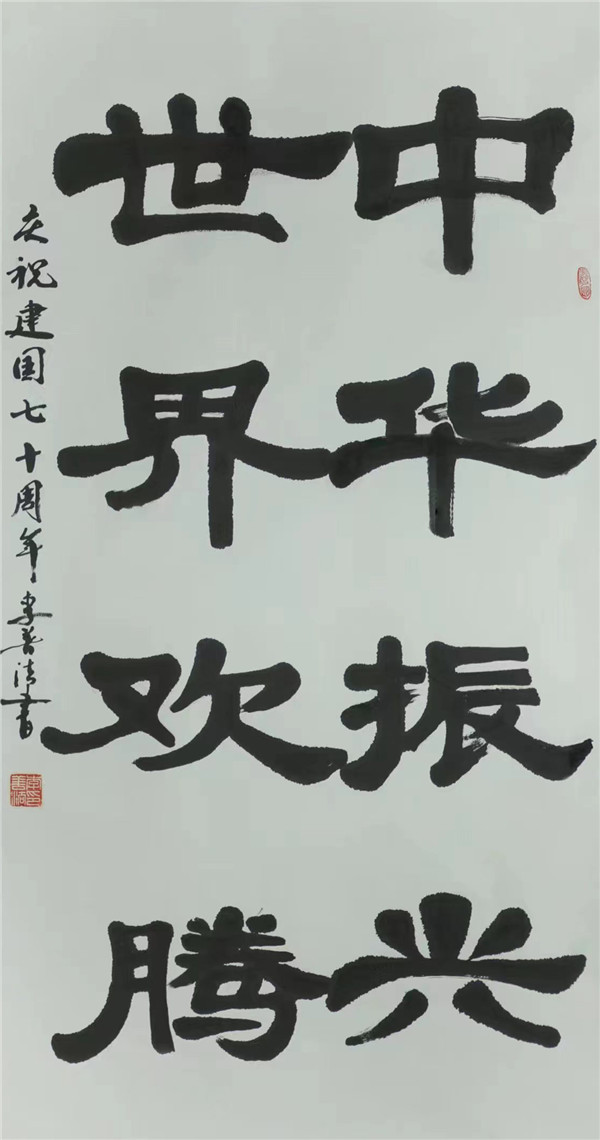 中华振兴
世界欢腾
庆祝建国七十周年 李善清书